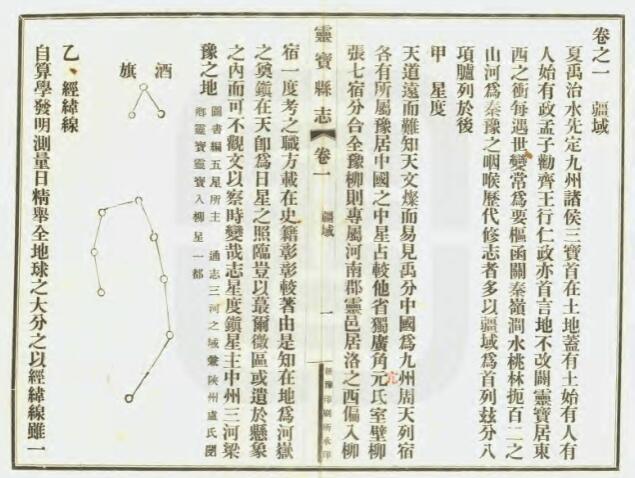 卷之一 疆域
夏禹治水先定九州諸侯三寶首在土地蓋有土始有人有
人始有政孟子勸齊王行仁政亦首言地不改闢靈寶居東
西之衝每遇世變常爲要樞函關秦嶺澗水桃林扼百二之
山河爲秦豫之咽喉歷代修志者多以疆域爲首列玆分八
項臚列於後
甲 星度
天道遠而難知天文燦而易見禹分中國爲九州周天列宿
各有所屬豫居中國之中星占較他省獨廣角亢氐室壁柳
張七宿分合全豫柳則專屬河南郡靈邑居洛之西偏入柳
靈寶縣志
卷一
疆域
一
宿一度考之職方載在史籍彰彰較著由是知在地爲河嶽
之奠鎮在天卽爲日星之照臨豈以蕞爾微區或遺於懸象
之內而可不觀文以察時變哉志星度鎮星主中州三河梁
豫之地
圖書編五星所主 通志三河之域 陝州盧氏閿
鄉靈寶靈寶入柳星一都
酒旗
乙、經緯線
自算學發明測量日精舉全地球之大分之以經緯線雖一